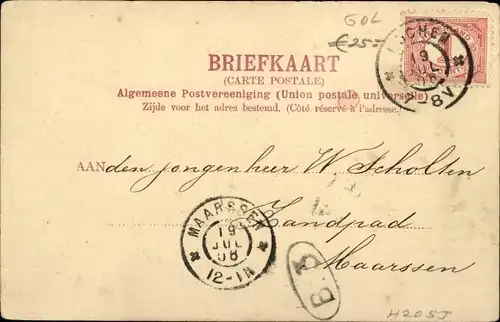 GOL
€ 25=
LOCHEM
19
JUL
08
7-8V
BRIEFKAART
(CARTE POSTALE)
Algemeene Postvereeniging (Union postale universelle)
Zijde voor het adres bestemd. (Côté réservé à l'adresse.)
AAN den jongenheer W. Scholten
Zandpad
Maarssen
MAARSSEN
19
JUL
08
12-1N
B.3
4205J